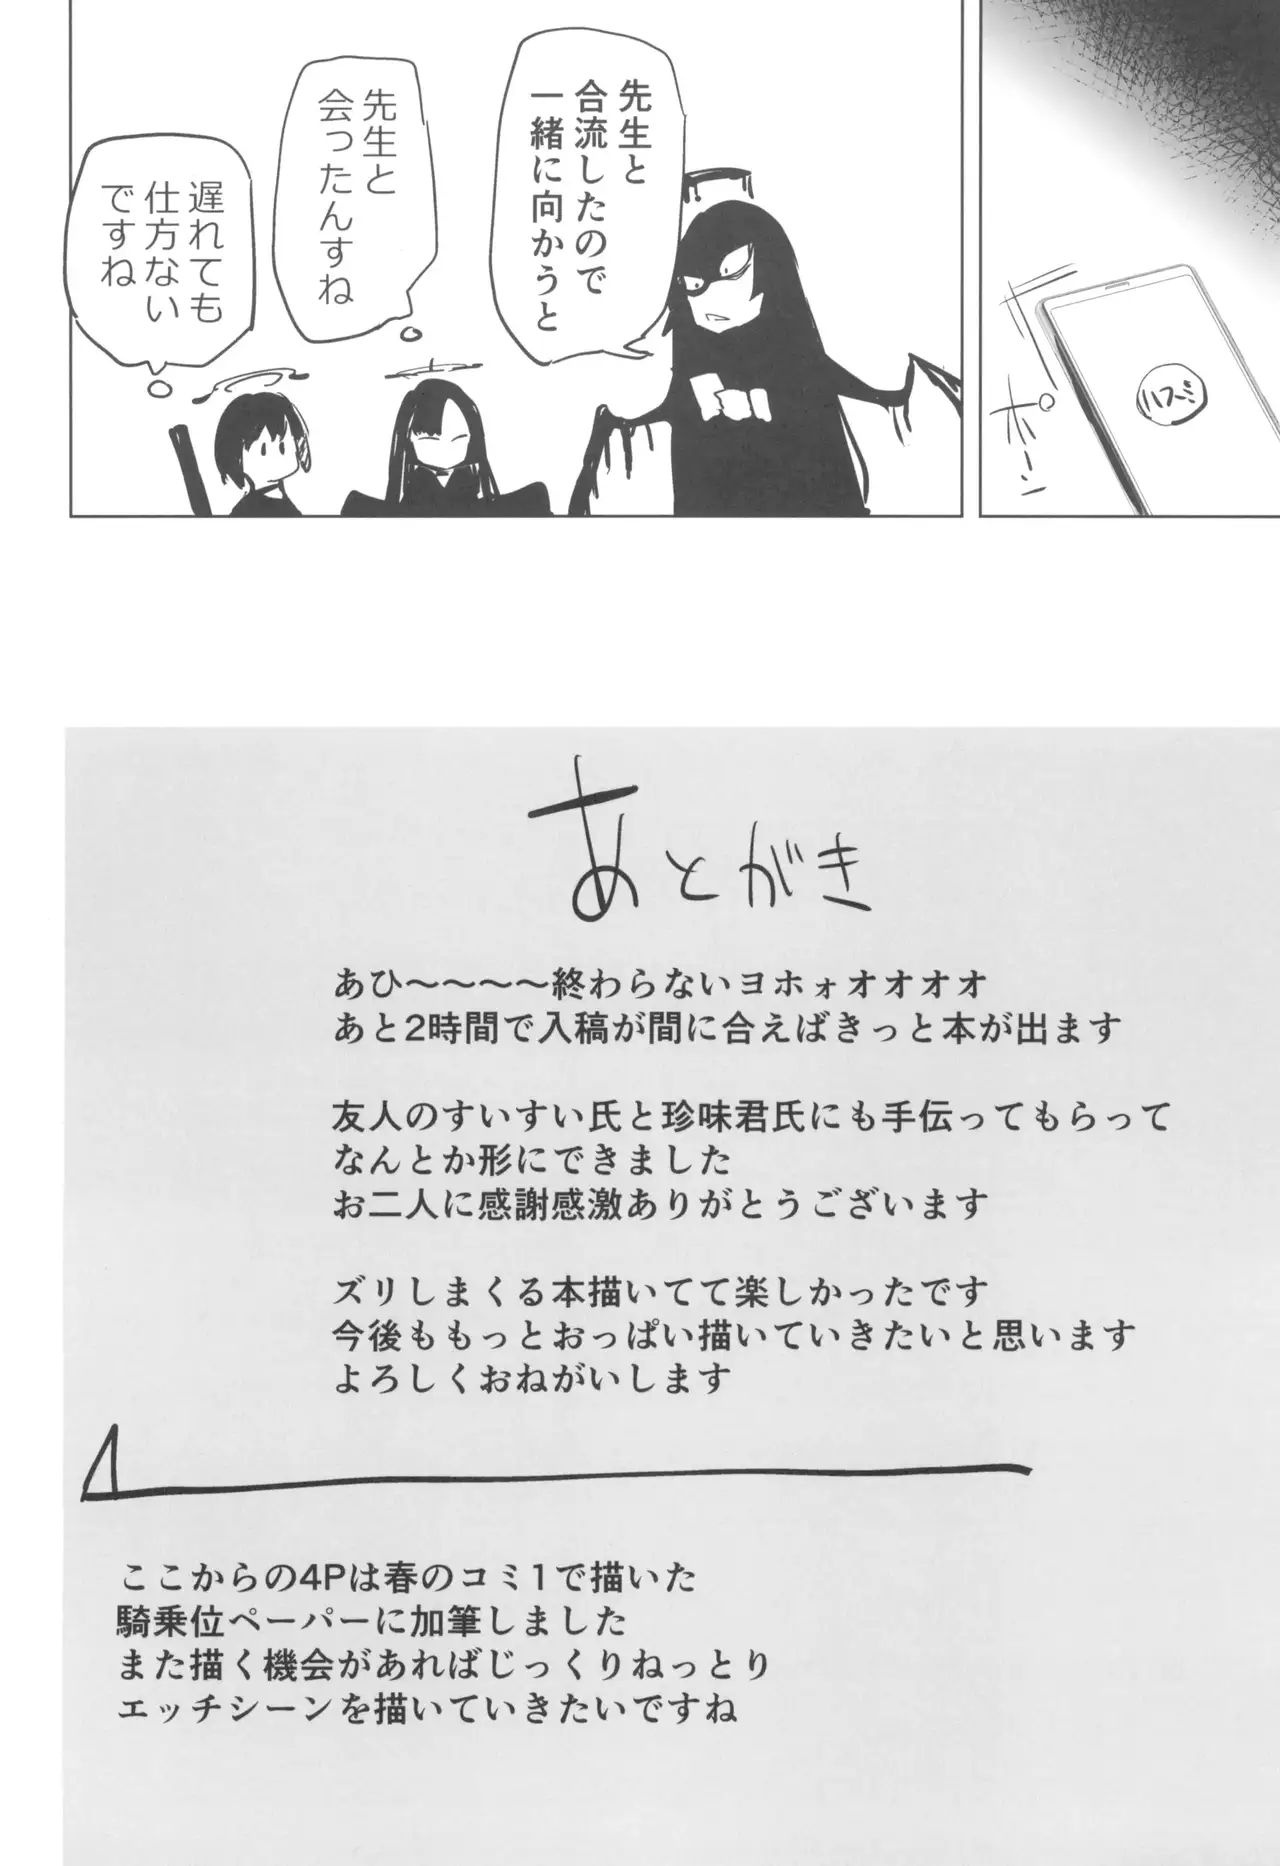 ハスミ
ポーン
先生と
合流したので
一緒に向かうと
先生と
会ったんすね
遅れても
仕方ない
ですね
あとがき
あひ〜〜〜〜終わらないヨホォオオオオ
あと2時間で入稿が間に合えばきっと本が出ます
友人のすいすい氏と珍味君氏にも手伝ってもらって
なんとか形にできました
お二人に感謝感激ありがとうございます
ズリしまくる本描いてて楽しかったです
今後ももっとおっぱい描いていきたいと思います
よろしくおねがいします
ここからの4Pは春のコミ1で描いた
騎乗位ペーパーに加筆しました
また描く機会があればじっくりねっとり
エッチシーンを描いていきたいですね